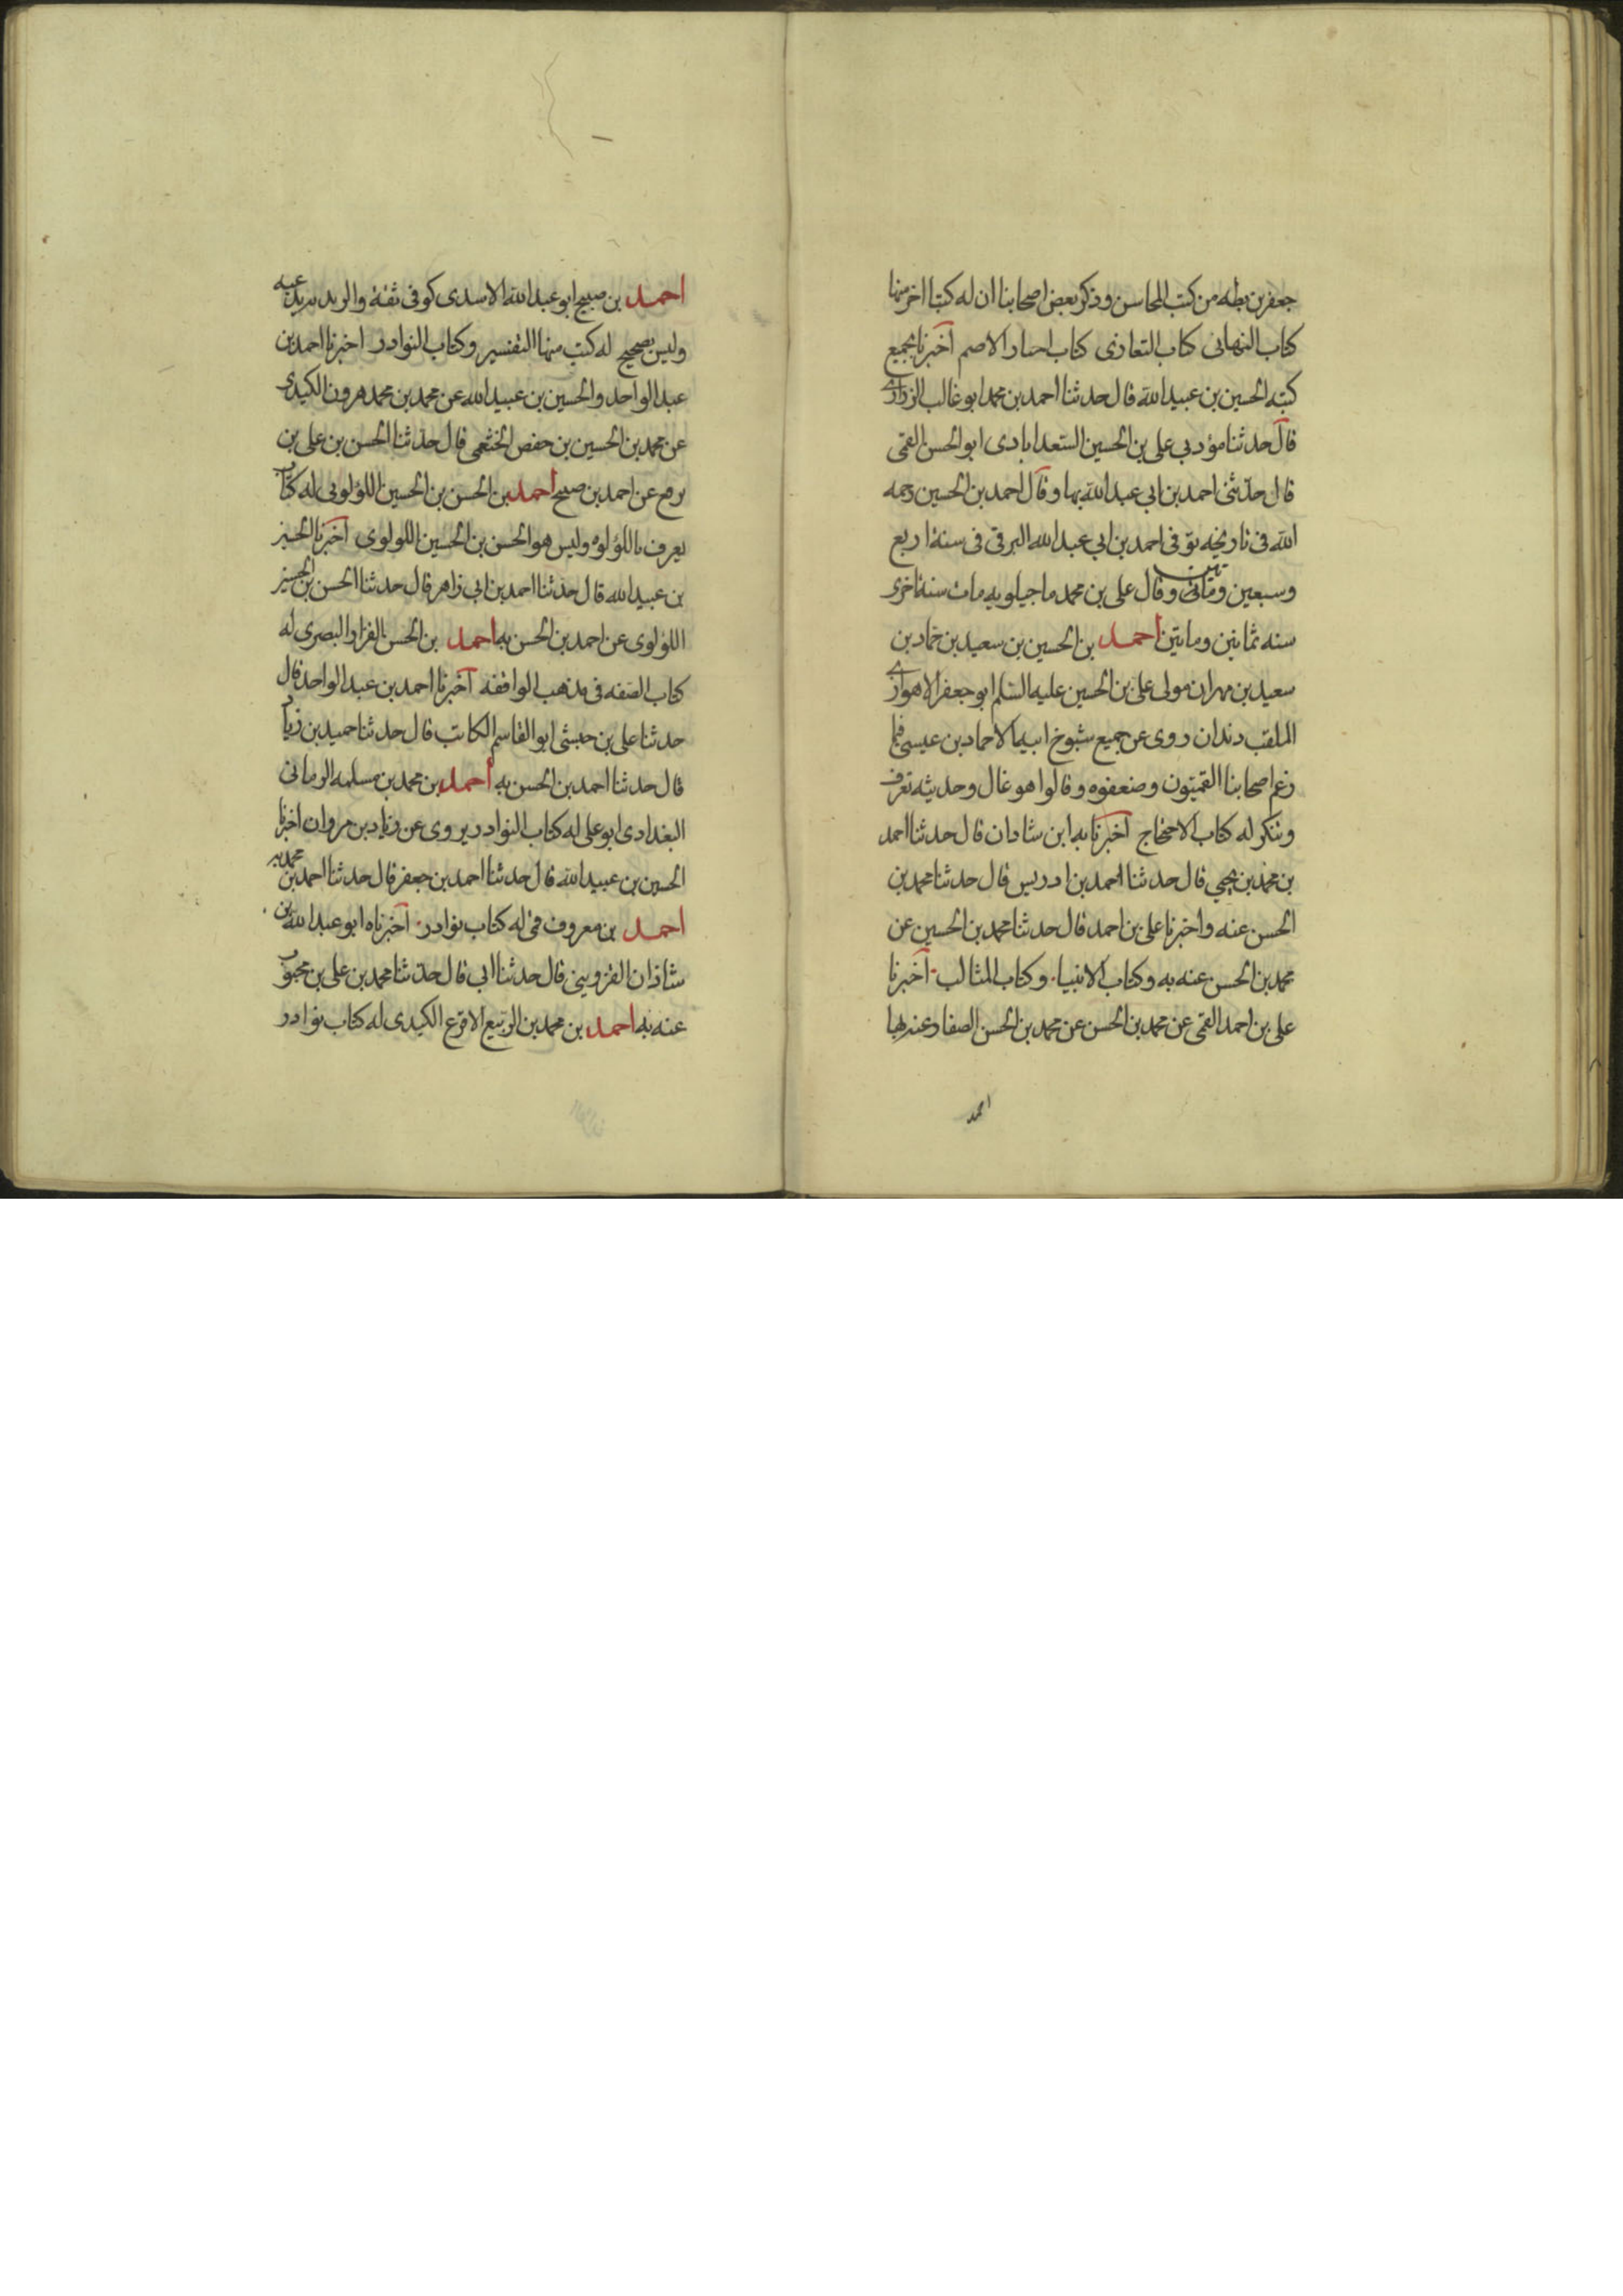 جعفر بن بطه من كتب المحاسن وذكر بعض اصحابنا ان له كتبا اخر منها
كتاب التهانى كتاب التعازى كتاب اخبار الاصم اخبرنا بجميع
كتبه الحسين بن عبيد الله قال حدثنا احمد بن محمد ابو غالب الزرارى
قال حدثنا مؤدبي على بن الحسين السعدابادى ابو الحسن القمى
قال حدثنى احمد بن ابي عبد الله بها وقال احمد بن الحسين رحمه
الله فى تاريخه توفى احمد بن ابي عبد الله البرقى فى سنة اربع
وسبعين ومأتين وقال على بن محمد ماجيلويه مات سنة اخرى
سنه ثمانين ومايتين احمد بن الحسين بن سعيد بن حماد بن
سعيد بن مهران مولى على بن الحسين عليه السلم ابو جعفر الاهوازى
الملقب دندان روى عن جميع شيوخ ابيه الا حماد بن عيسى فيما
زعم اصحابنا القميون وضعفوه وقالوا هو غال وحديثه تعرف
وتنكر له كتاب الاحتجاج اخبرنا به ابن شاذان قال حدثنا احمد
بن محمد بن يحيى قال حدثنا احمد بن ادريس قال حدثنا محمد بن
الحسن عنه واخبرنا على بن احمد قال حدثنا محمد بن الحسين عن
محمد بن الحسن عنه به وكتاب الانبياء وكتاب المثالب اخبرنا
على بن احمد القمى عن محمد بن الحسن عن محمد بن الحسن الصفار عنه بها
احمد
احمد بن صبيح ابو عبد الله الاسدى كوفى ثقة والزيديه تدعيه
وليس بصحيح له كتب منها التفسير وكتاب النوادر اخبرنا احمد بن
عبد الواحد والحسين بن عبيد الله عن محمد بن محمد هرون الكندى
عن محمد بن الحسين بن حفص الخثعمى قال حدثنا الحسن بن على بن
بزيع عن احمد بن صبيح احمد بن الحسن بن الحسين اللؤلوئى له كتاب
يعرف باللؤلؤه وليس هو الحسن بن الحسين اللولوى اخبرنا الحسين
بن عبيد الله قال حدثنا احمد بن ابي زاهر قال حدثنا الحسن بن الحسين
اللؤلوى عن احمد بن الحسن به احمد بن الحسن القزاز البصرى له
كتاب الصفه فى مذهب الواقفه اخبرنا احمد بن عبد الواحد قال
حدثنا على بن حبشى ابو القاسم الكاتب قال حدثنا حميد بن زياد
قال حدثنا احمد بن الحسن به احمد بن محمد بن مسلمه الرمانى
البغدادى ابو على له كتاب النوادر يروى عن زياد بن مروان اخبرنا
الحسين بن عبيد الله قال حدثنا احمد بن جعفر قال حدثنا احمد بن محمد به
احمد بن معروف قمى له كتاب نوادر اخبرناه ابو عبد الله بن
شاذان القزويني قال حدثنا ابي قال حدثنا محمد بن على بن محبوب
عنه به احمد بن محمد بن الربيع الاقرع الكندى له كتاب نوادر